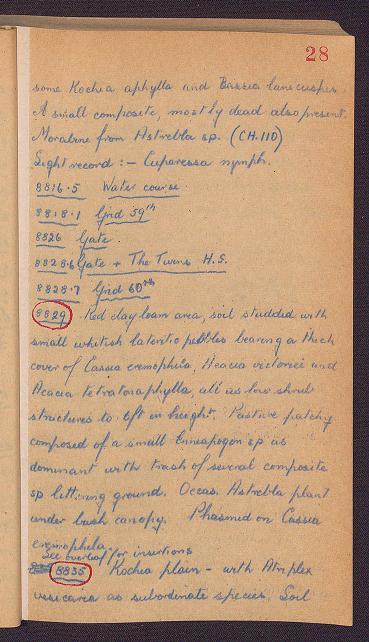 28
some Kochia aphylla and Bassia lanicuspis.
A small composite, mostly dead also present.
Morabine from Astrebla sp. (CH.110)
Sight record :- Cuparessa nymph.
8816.5 Water course.
8818.1 Grid 59th
8826 Gate.
8828.6 Gate + The Twins H.S.
8828.7 Grid 60th
8829 Red clay loam area, soil studded with
small whitish lateritic pebbles bearing a thick
cover of Cassia eremophila, Acacia victoriae and
Acacia tetragonaphylla, all as low shrub
structures to 6ft in height. Pasture patchy
composed of a small Enneapogon sp as
dominant with trash of several composite
sp littering ground. Occas. Astrebla plant
under bush canopy. Phasmid on Cassia
eremophela.
See overleaf for insertions
8835 Kochia plain - with Atriplex
vesicaria as subordinate species. Soil